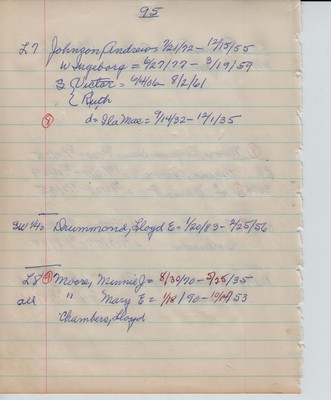 95
L7 Johnson, Andrew = 7/21/72 - 12/15/55
W Ingeborg = 6/27/77 - 3/19/59
S Victor = 6/4/06 - 8/2/61
& Ruth
d = Ila Mae = 9/14/32 - 12/1/35
SW 1/4 Drummond, Lloyd E = 1/20/83 - 2/25/56
L8 Moore, Minnie J = 8/30/70 - 5/25/35
all " Mary E = 1/18/90 - 53
Chambers, Lloyd